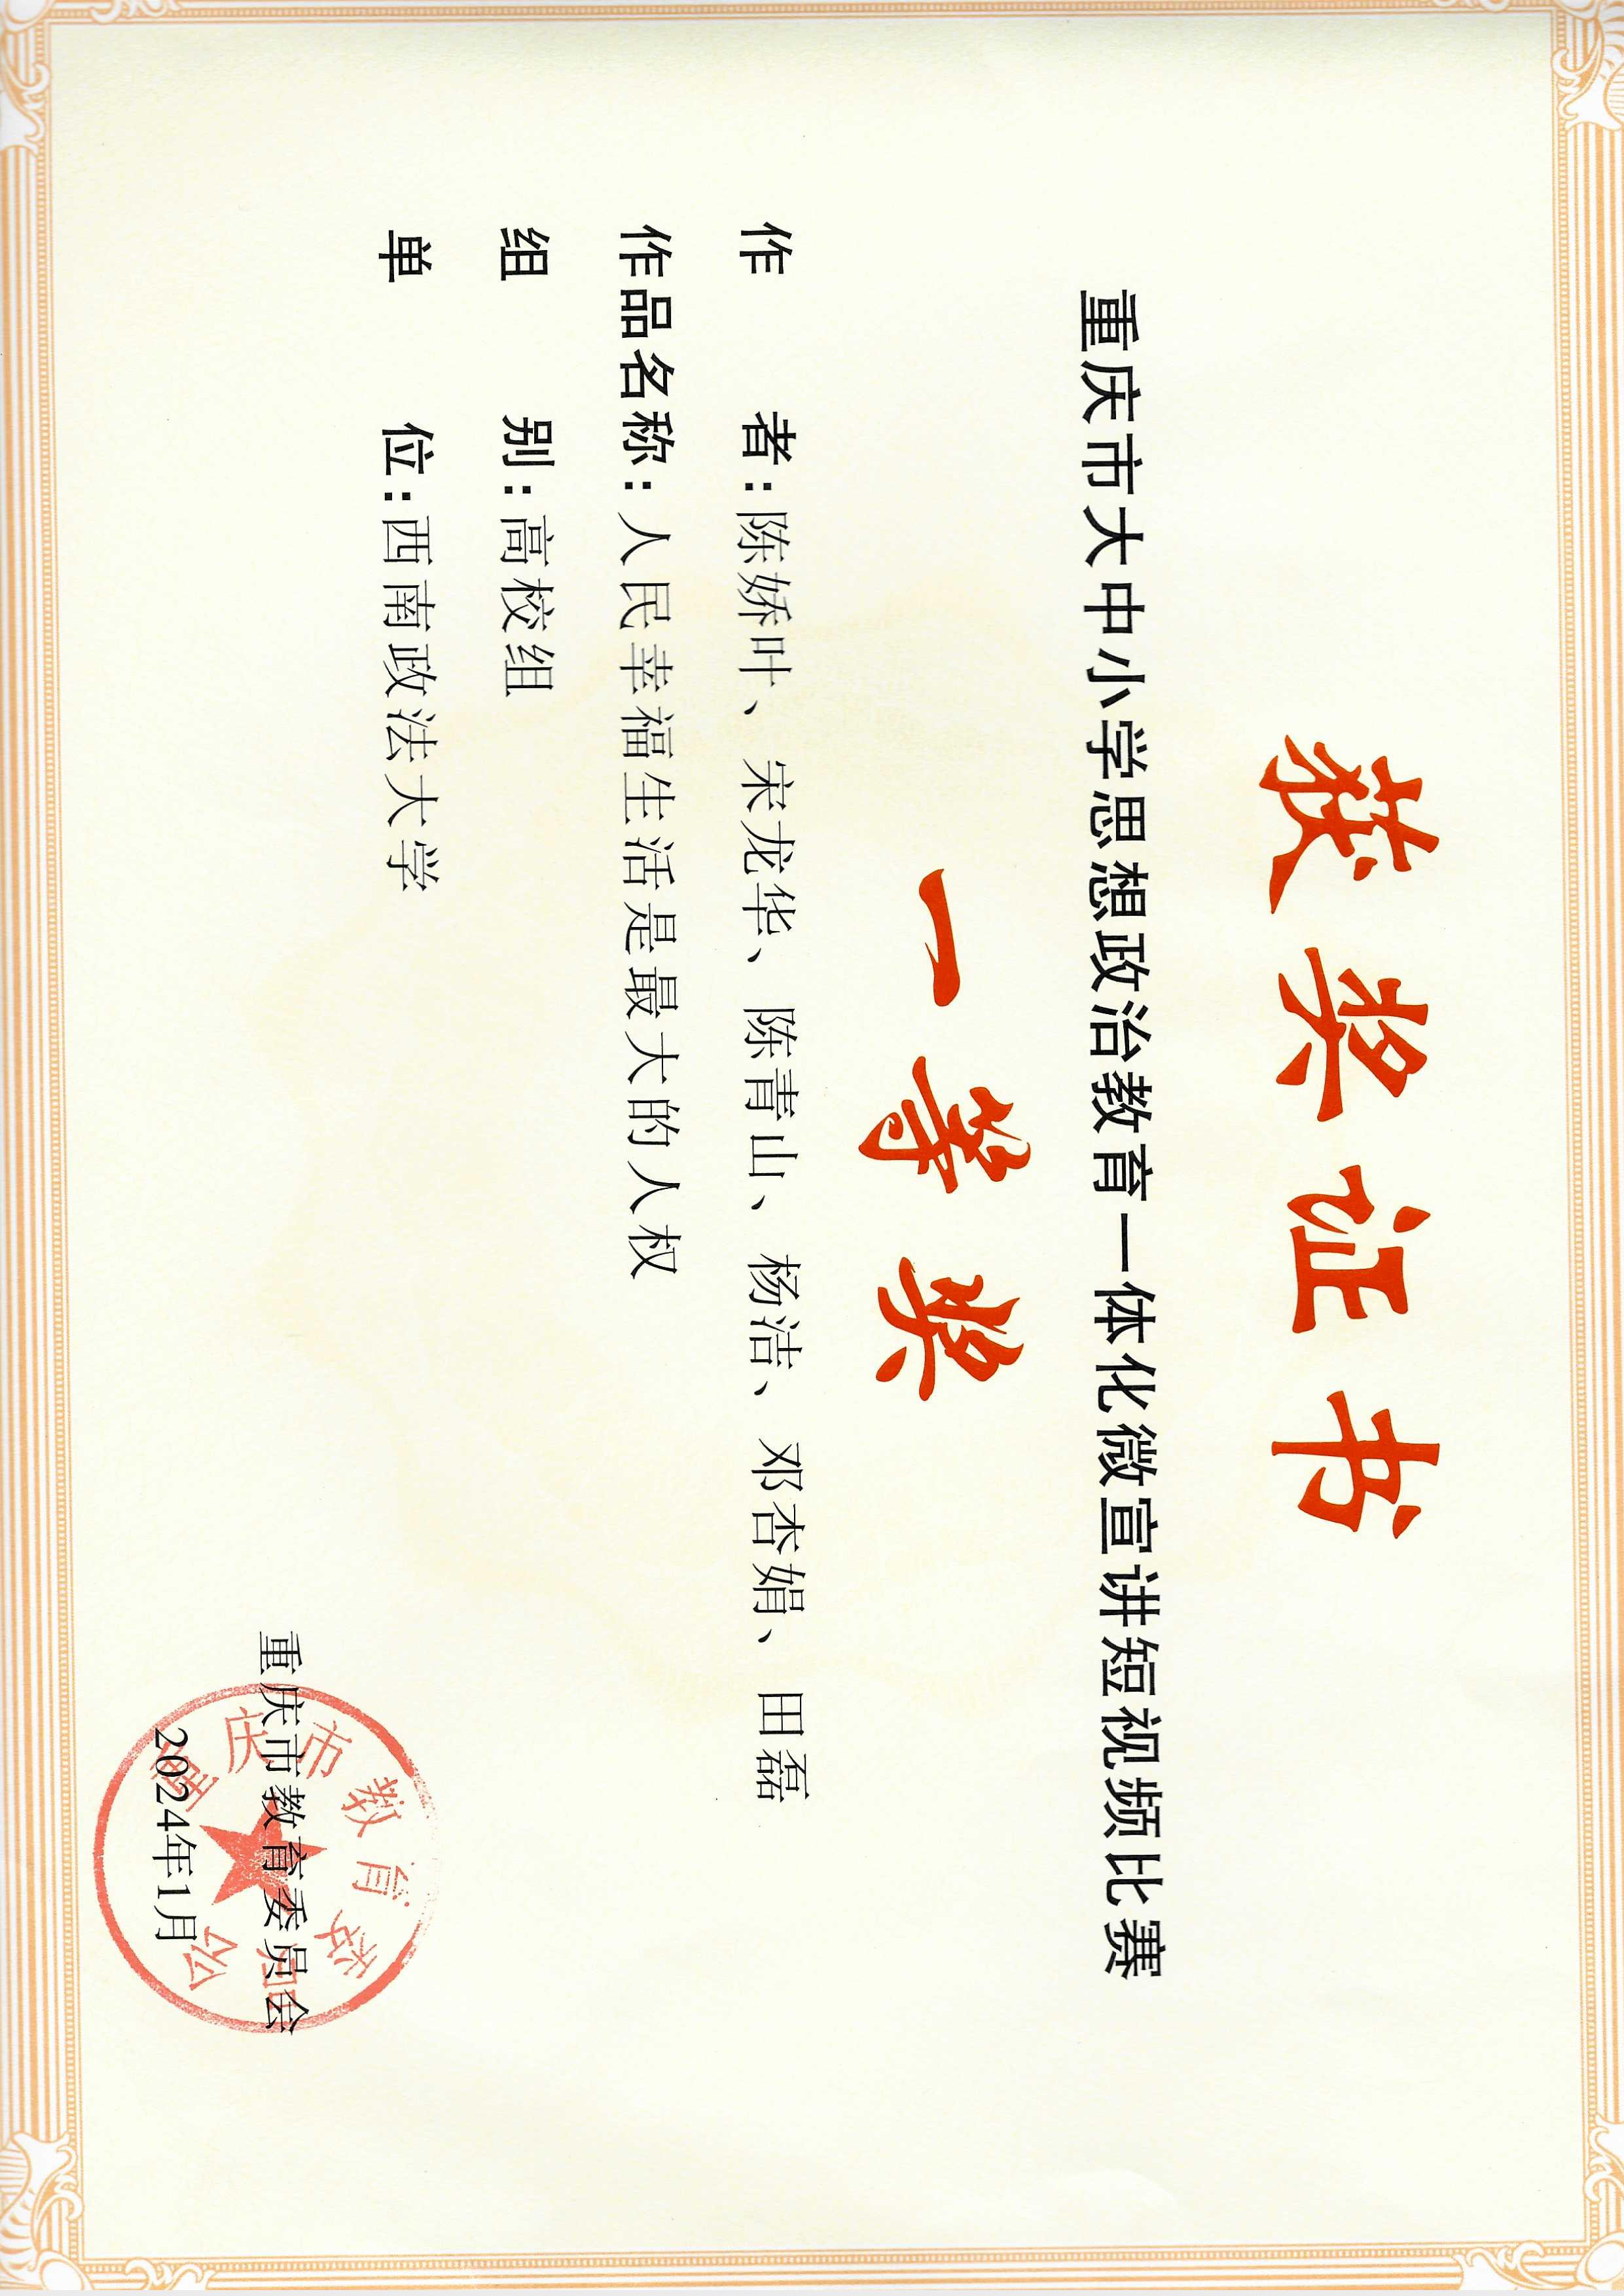 获奖证书
重庆市大中小学思想政治教育一体化微宣讲短视频比赛
一等奖
作者：陈娇叶、宋龙华、陈青山、杨洁、邓杏娟、田磊
作品名称：人民幸福生活是最大的人权
组别：高校组
单位：西南政法大学
重庆市教育委员会
2024年1月
重庆市教育委员会